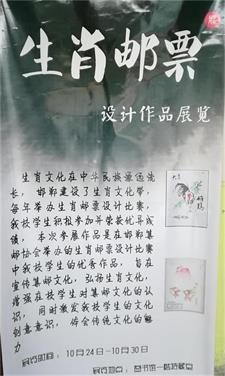 生肖邮票
设计作品展览
生肖文化在中华民族源远流
长， 邯郸建设了生肖文化带，
每年举办生肖邮票设计比赛，
我校学生积极参加并荣获优异成
绩， 本次参展作品是在邯郸集
邮协会举办的生肖邮票设计比赛
中我校学生的优秀作品， 旨在
宣传集邮文化， 弘扬生肖文化，
增强在校学生对集邮文化的认
识， 同时激发我校学生的文化
创意意识， 体会传统文化的魅
力
展览时间： 10月24日-10月30日
展览地点： 图书馆一